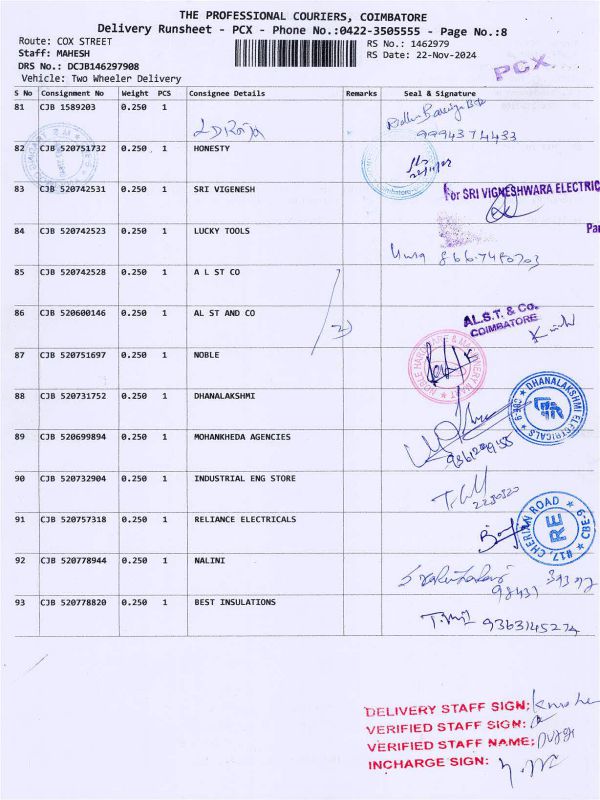 THE PROFESSIONAL COURIERS, COIMBATORE
Delivery Runsheet - PCX - Phone No.:0422-3505555 - Page No.:8
Route: COX STREET
RS No.: 1462979
Staff: MAHESH
RS Date: 22-Nov-2024
DRS No.: DCJB146297908
Vehicle: Two Wheeler Delivery
PCX
S No Consignment No Weight PCS Consignee Details Remarks Seal & Signature
81 CJB 1589203 0.250 1
9994374433
82 CJB 520751732 0.250 1 HONESTY
83 CJB 520742531 0.250 1 SRI VIGENESH
For SRI VIGNESHWARA ELECTRIC
Pa
84 CJB 520742523 0.250 1 LUCKY TOOLS
85 CJB 520742528 0.250 1 A L ST CO
86 CJB 520600146 0.250 1 AL ST AND CO
AL.S.T. & Co.
COIMBATORE
87 CJB 520751697 0.250 1 NOBLE
NOBLE HARDWARE & MACHINERY MART
88 CJB 520731752 0.250 1 DHANALAKSHMI
DHANALAKSHMI ELECTRICALS CBE-9
89 CJB 520699894 0.250 1 MOHANKHEDA AGENCIES
90 CJB 520732904 0.250 1 INDUSTRIAL ENG STORE
2230320
91 CJB 520757318 0.250 1 RELIANCE ELECTRICALS
RE
#17, CHERIAN ROAD CBE-9
92 CJB 520778944 0.250 1 NALINI
93 CJB 520778820 0.250 1 BEST INSULATIONS
9363145274
DELIVERY STAFF SIGN:
VERIFIED STAFF SIGN:
VERIFIED STAFF NAME:
INCHARGE SIGN: